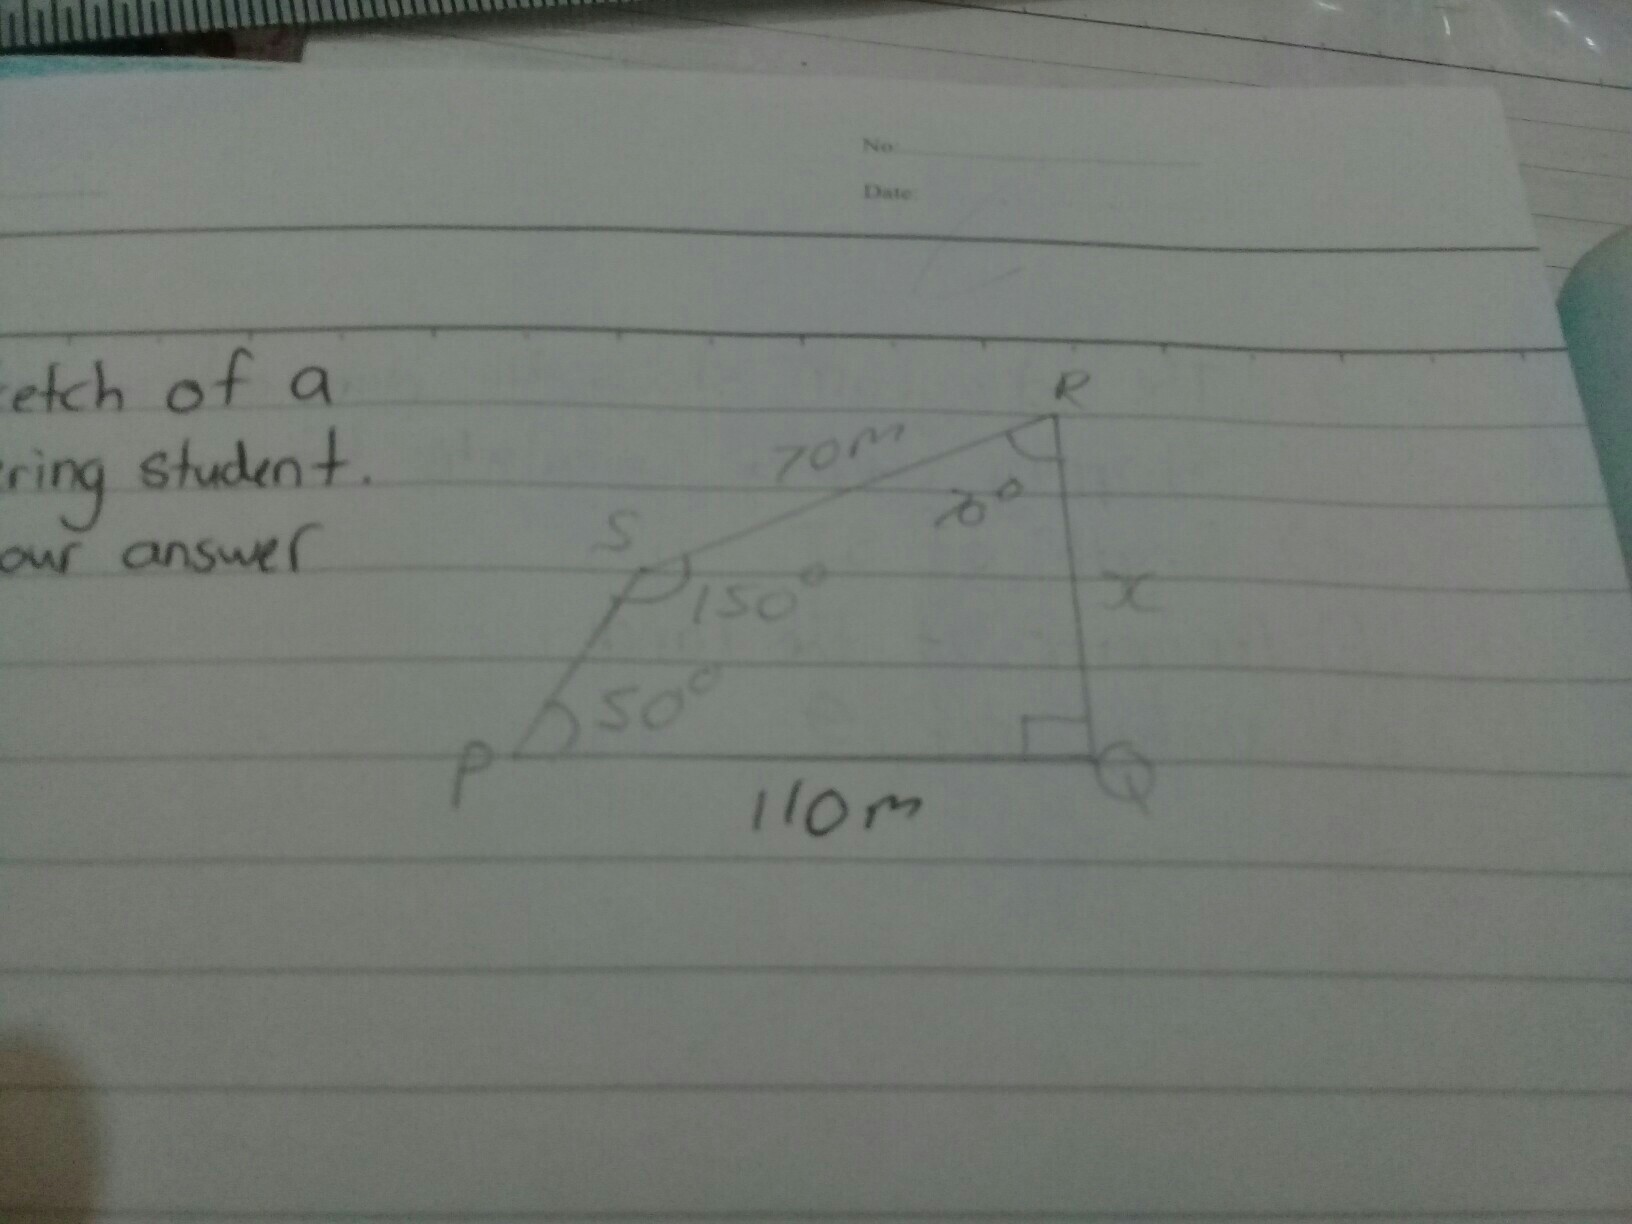 No:
Date:
etch of a
ring student.
our answer
R
70m
70°
S
150°
x
50°
P
Q
110m